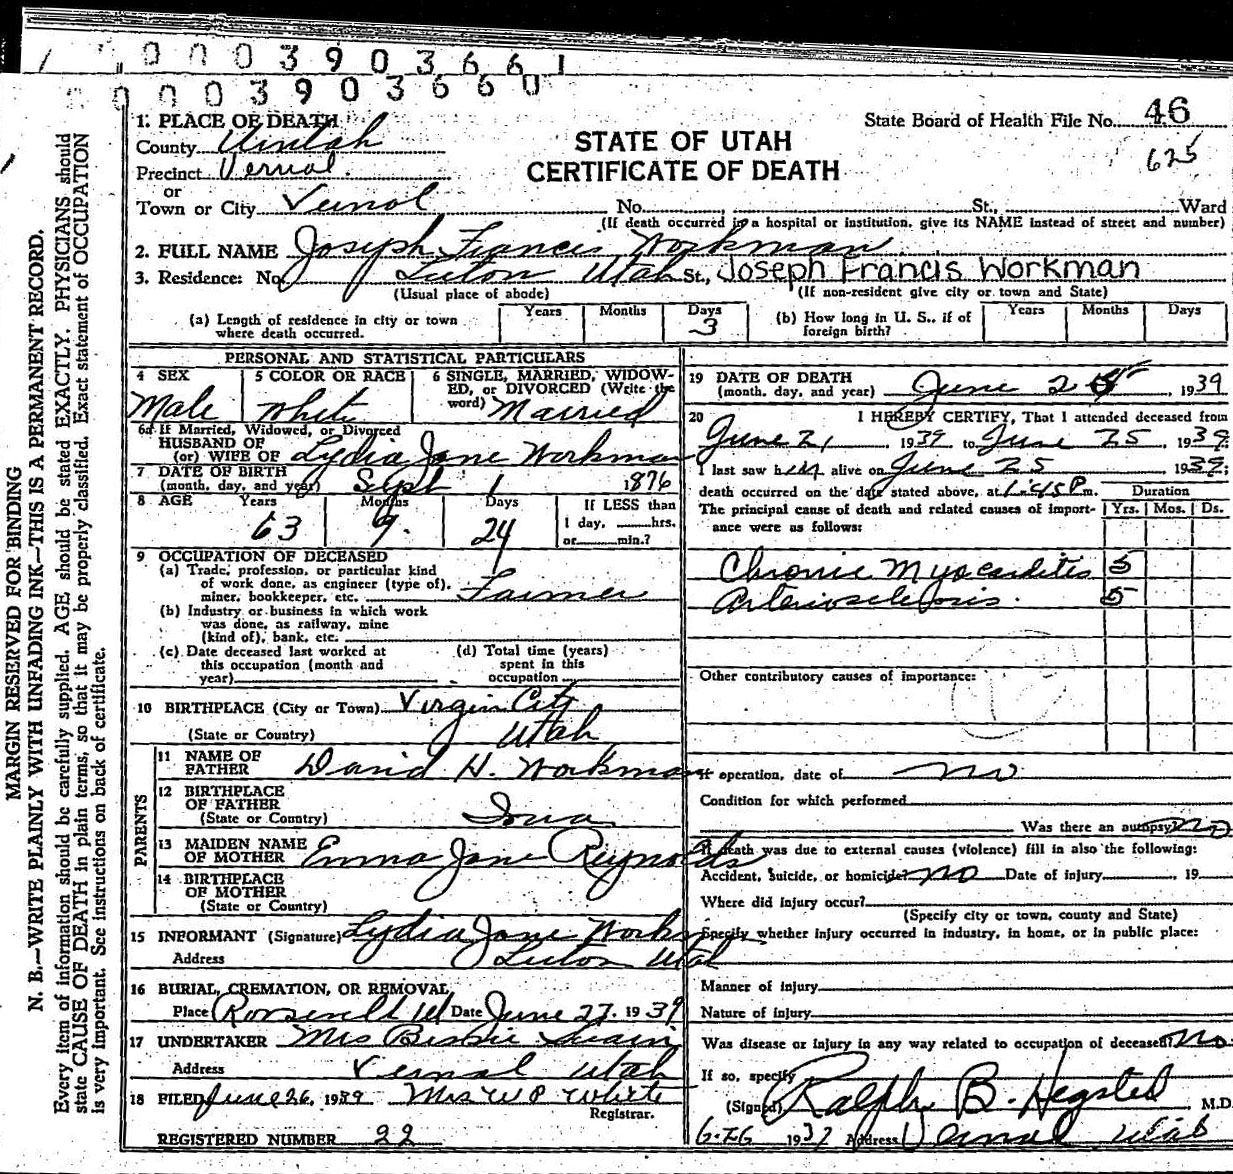 0003903661
0003903660
1. PLACE OF DEATH
County Uintah
State Board of Health File No. 46
625
STATE OF UTAH
CERTIFICATE OF DEATH
Precinct Vernal.
or
Town or City Vernal No. , St., Ward
(If death occurred in a hospital or institution, give its NAME instead of street and number)
2. FULL NAME Joseph Francis Workman
3. Residence: No. Leeton Utah St., Joseph Francis Workman
(Usual place of abode) (If non-resident give city or town and State)
(a) Length of residence in city or town where death occurred. Years Months Days 3 (b) How long in U. S., if of foreign birth? Years Months Days
PERSONAL AND STATISTICAL PARTICULARS
4 SEX Male
5 COLOR OR RACE White
6 SINGLE, MARRIED, WIDOW-
ED, or DIVORCED (Write the
word) Married
6a If Married, Widowed, or Divorced
HUSBAND OF
(or) WIFE OF Lydia Jane Workman
7 DATE OF BIRTH
(month, day, and year) Sept 1 1876
8 AGE Years Months Days If LESS than
63 9. 24 1 day, hrs.
or min.?
9 OCCUPATION OF DECEASED
(a) Trade, profession, or particular kind
of work done, as engineer (type of),
miner, bookkeeper, etc. Farmer
(b) Industry or business in which work
was done, as railway, mine
(kind of), bank, etc.
(c) Date deceased last worked at
this occupation (month and
year)
(d) Total time (years)
spent in this
occupation
10 BIRTHPLACE (City or Town) Virgin City
(State or Country) Utah
PARENTS
11 NAME OF
FATHER David H. Workman
12 BIRTHPLACE
OF FATHER
(State or Country) Iowa
13 MAIDEN NAME
OF MOTHER Emma Jane Reynolds
14 BIRTHPLACE
OF MOTHER
(State or Country)
15 INFORMANT (Signature) Lydia Jane Workman
Address Leeton Utah
16 BURIAL, CREMATION, OR REMOVAL
Place Roosevelt Ut Date June 27. 1939
17 UNDERTAKER Mrs Bessie Swain
Address Vernal Utah
18 FILED June 26, 1939 Mrs W P White
Registrar.
REGISTERED NUMBER 22
19 DATE OF DEATH
(month, day, and year) June 25 1939
20 I HEREBY CERTIFY, That I attended deceased from
June 21, 1939 to June 25, 1939
I last saw him alive on June 25 1939;
death occurred on the date stated above, at 1:45 P m. Duration
The principal cause of death and related causes of import-
ance were as follows: Yrs. Mos. Ds.
Chronic Myocarditis 5
Arteriosclerosis. 5
Other contributory causes of importance:
If operation, date of no
Condition for which performed
Was there an autopsy? no
If death was due to external causes (violence) fill in also the following:
Accident, suicide, or homicide? no Date of injury , 19
Where did injury occur?
(Specify city or town, county and State)
Specify whether injury occurred in industry, in home, or in public place:
Manner of injury
Nature of injury
Was disease or injury in any way related to occupation of deceased? No
If so, specify
(Signed) Ralph B. Hegsted M.D.
6-26 1937 Address Vernal Utah
MARGIN RESERVED FOR BINDING
N. B.—WRITE PLAINLY WITH UNFADING INK—THIS IS A PERMANENT RECORD.
Every item of information should be carefully supplied. AGE should be stated EXACTLY. PHYSICIANS should
state CAUSE OF DEATH in plain terms, so that it may be properly classified. Exact statement of OCCUPATION
is very important. See instructions on back of certificate.